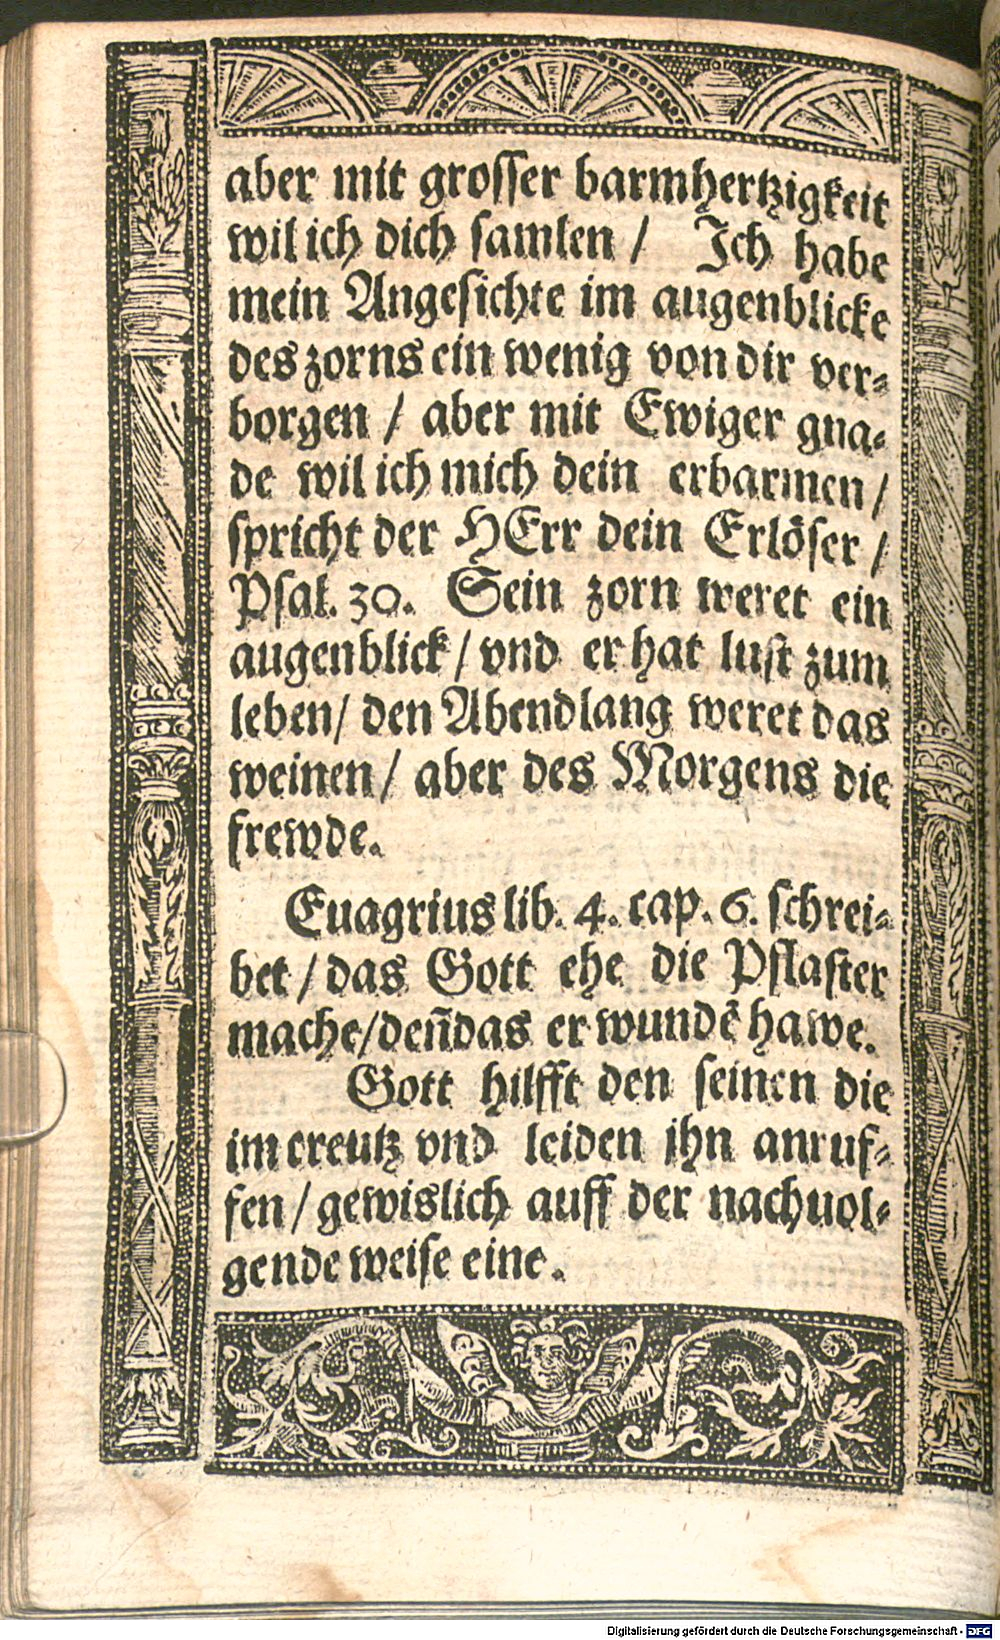 aber mit grosser barmhertzigkeit
wil ich dich samlen / Ich habe
mein Angesichte im augenblicke
des zorns ein wenig von dir ver-
borgen / aber mit Ewiger gna-
de wil ich mich dein erbarmen /
spricht der HErr dein Erlöser /
Psal. 30. Sein zorn weret ein
augenblick / vnd er hat lust zum
leben / den Abendlang weret das
weinen / aber des Morgens die
frewde.
Euagrius lib. 4. cap. 6. schrei-
bet / das Gott ehe die Pflaster
mache/deñ das er wundẽ hawe.
Gott hilfft den seinen die
im creutz vnd leiden jhn anruf-
fen / gewislich auff der nachuol-
gende weise eine.
Digitalisierung gefördert durch die Deutsche Forschungsgemeinschaft - DFG